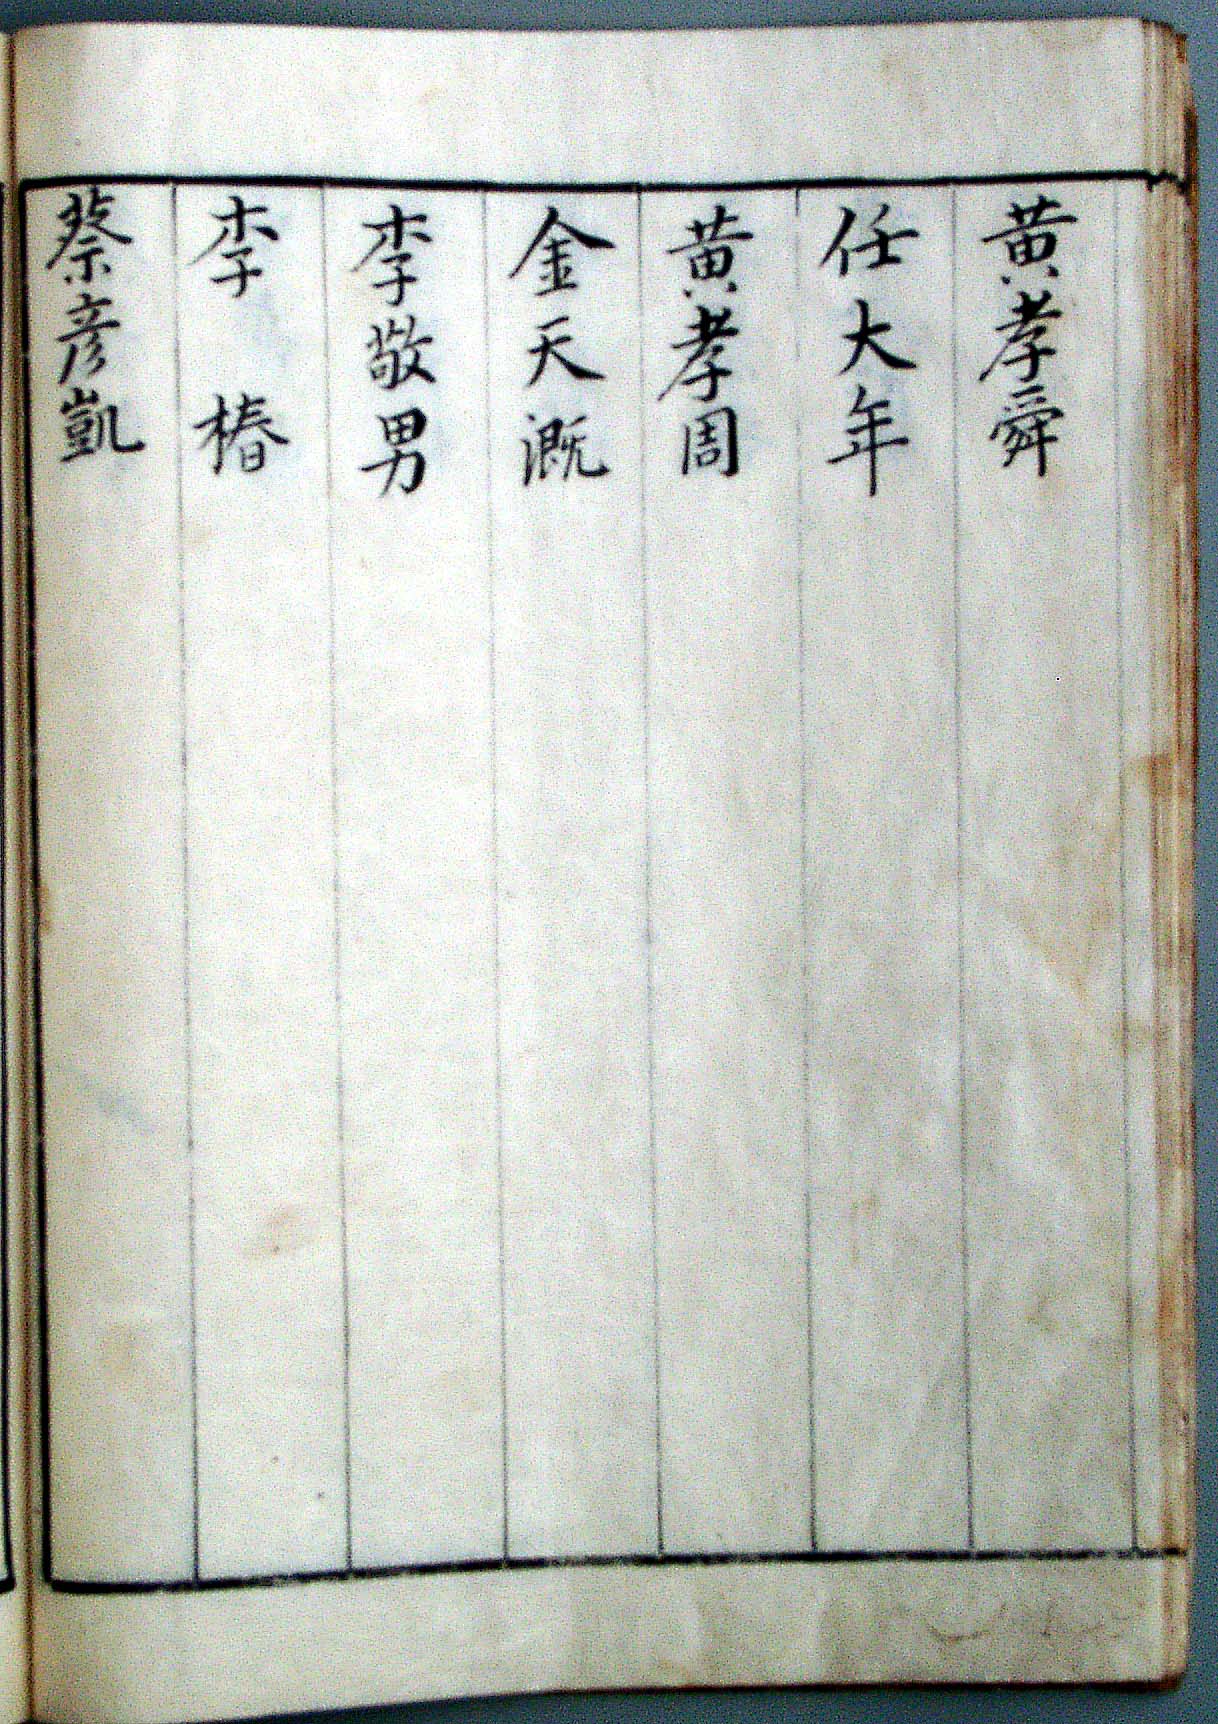 黄孝舜
任大年
黄孝周
金天漑
李敬男
李椿
蔡彦凱